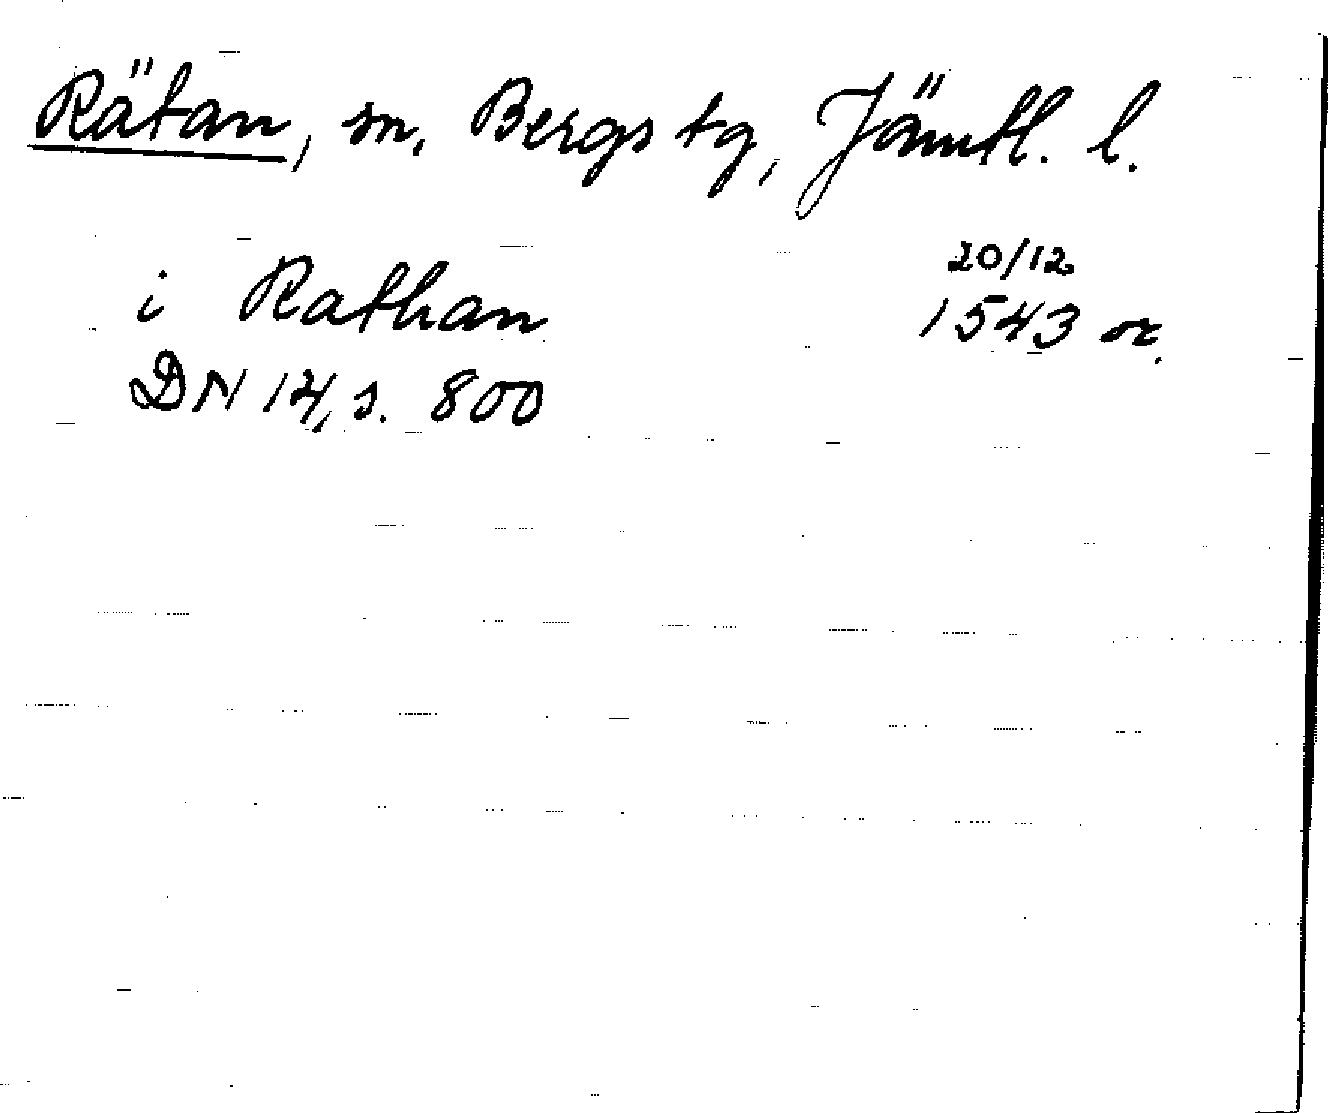 Rätan, sn, Bergs tg, Jämtl. l.
i Rathan 20/12 1543 or.
DN 14, s. 800